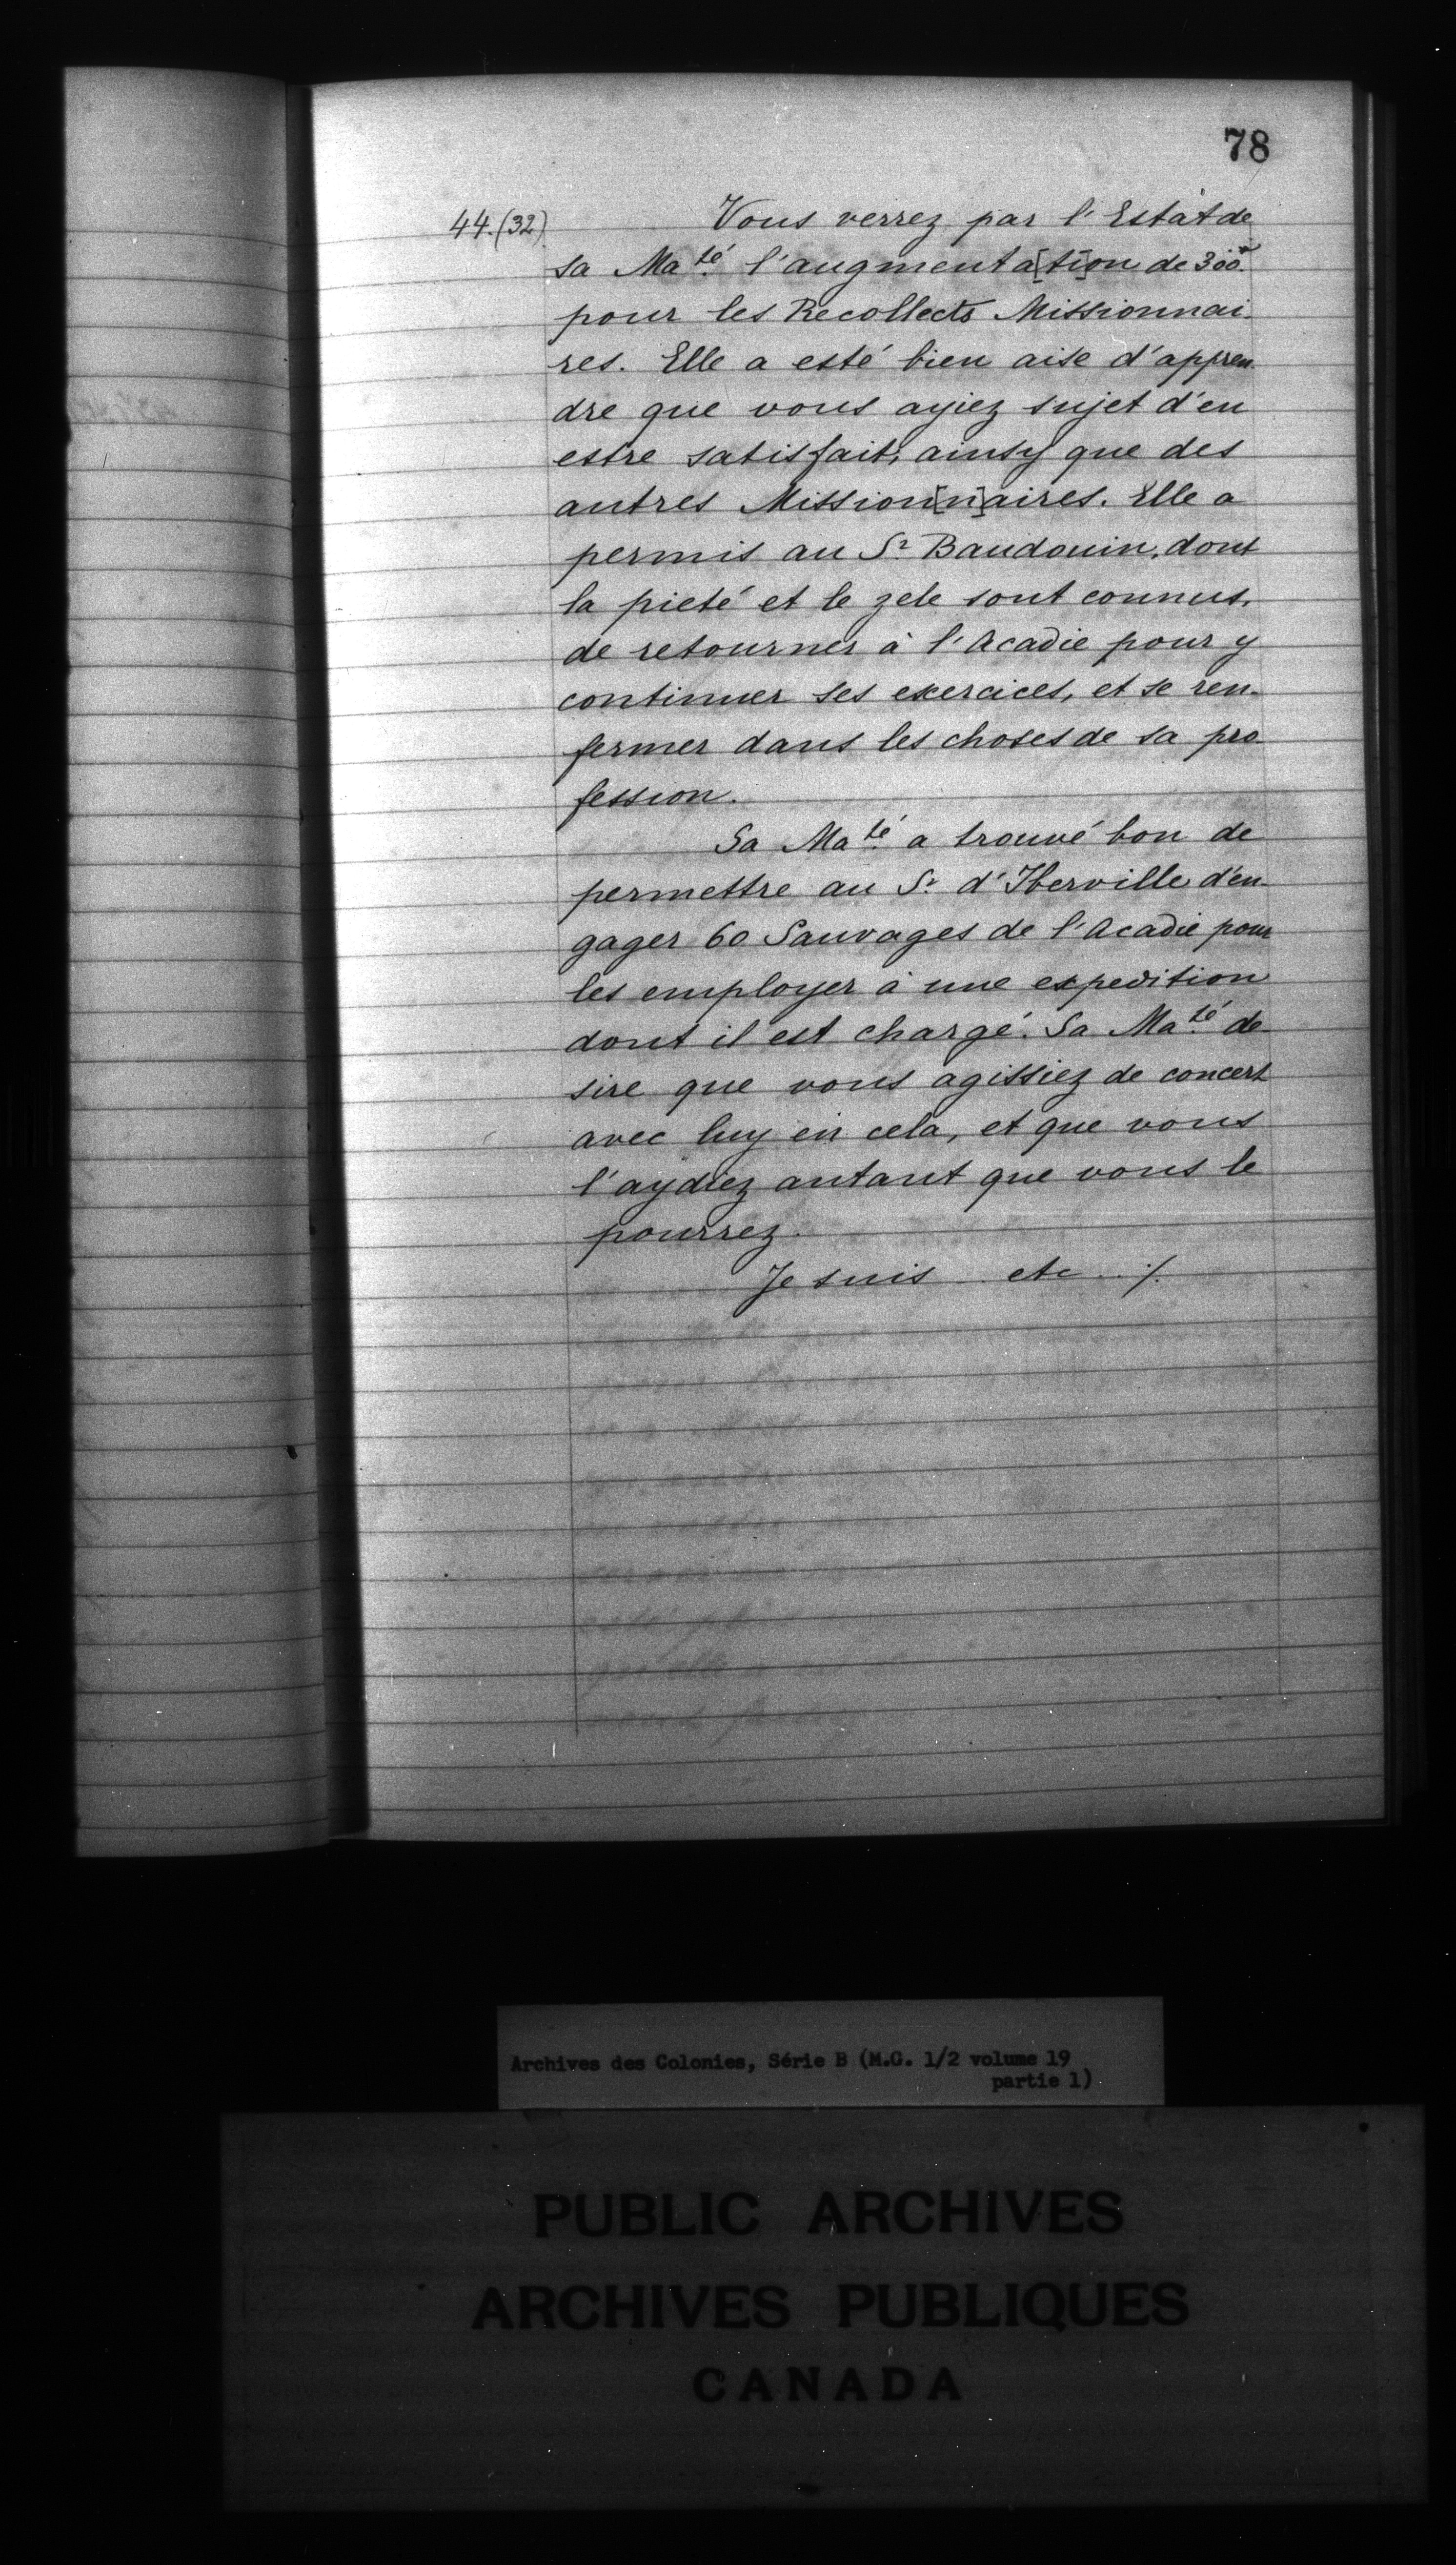 78
44.(32)
Vous verrez par l'Estat de
sa Ma.té l'augmenta[ti]on de 300.#
pour les Recollects Missionnai-
res. Elle a esté bien aise d'appren-
dre que vous ayiez sujet d'en
estre satisfait, ainsy que des
autres Mission[n]aires. Elle a
permis au Sr. Baudouin, dont
la pieté et le zele sont connus,
de retourner à l'Acadie pour y
continuer ses exercices, et se ren-
fermer dans les choses de sa pro-
fession.
Sa Ma.té a trouvé bon de
permettre au Sr. d'Iberville d'en-
gager 60 Sauvages de l'Acadie pour
les employer à une expedition
dont il est chargé. Sa Ma.té de-
sire que vous agissiez de concert
avec luy en cela, et que vous
l'aydiez autant que vous le
pourrez.
Je suis etc ./.
Archives des Colonies, Série B (M.G. 1/2 volume 19
partie 1)
PUBLIC ARCHIVES
ARCHIVES PUBLIQUES
CANADA